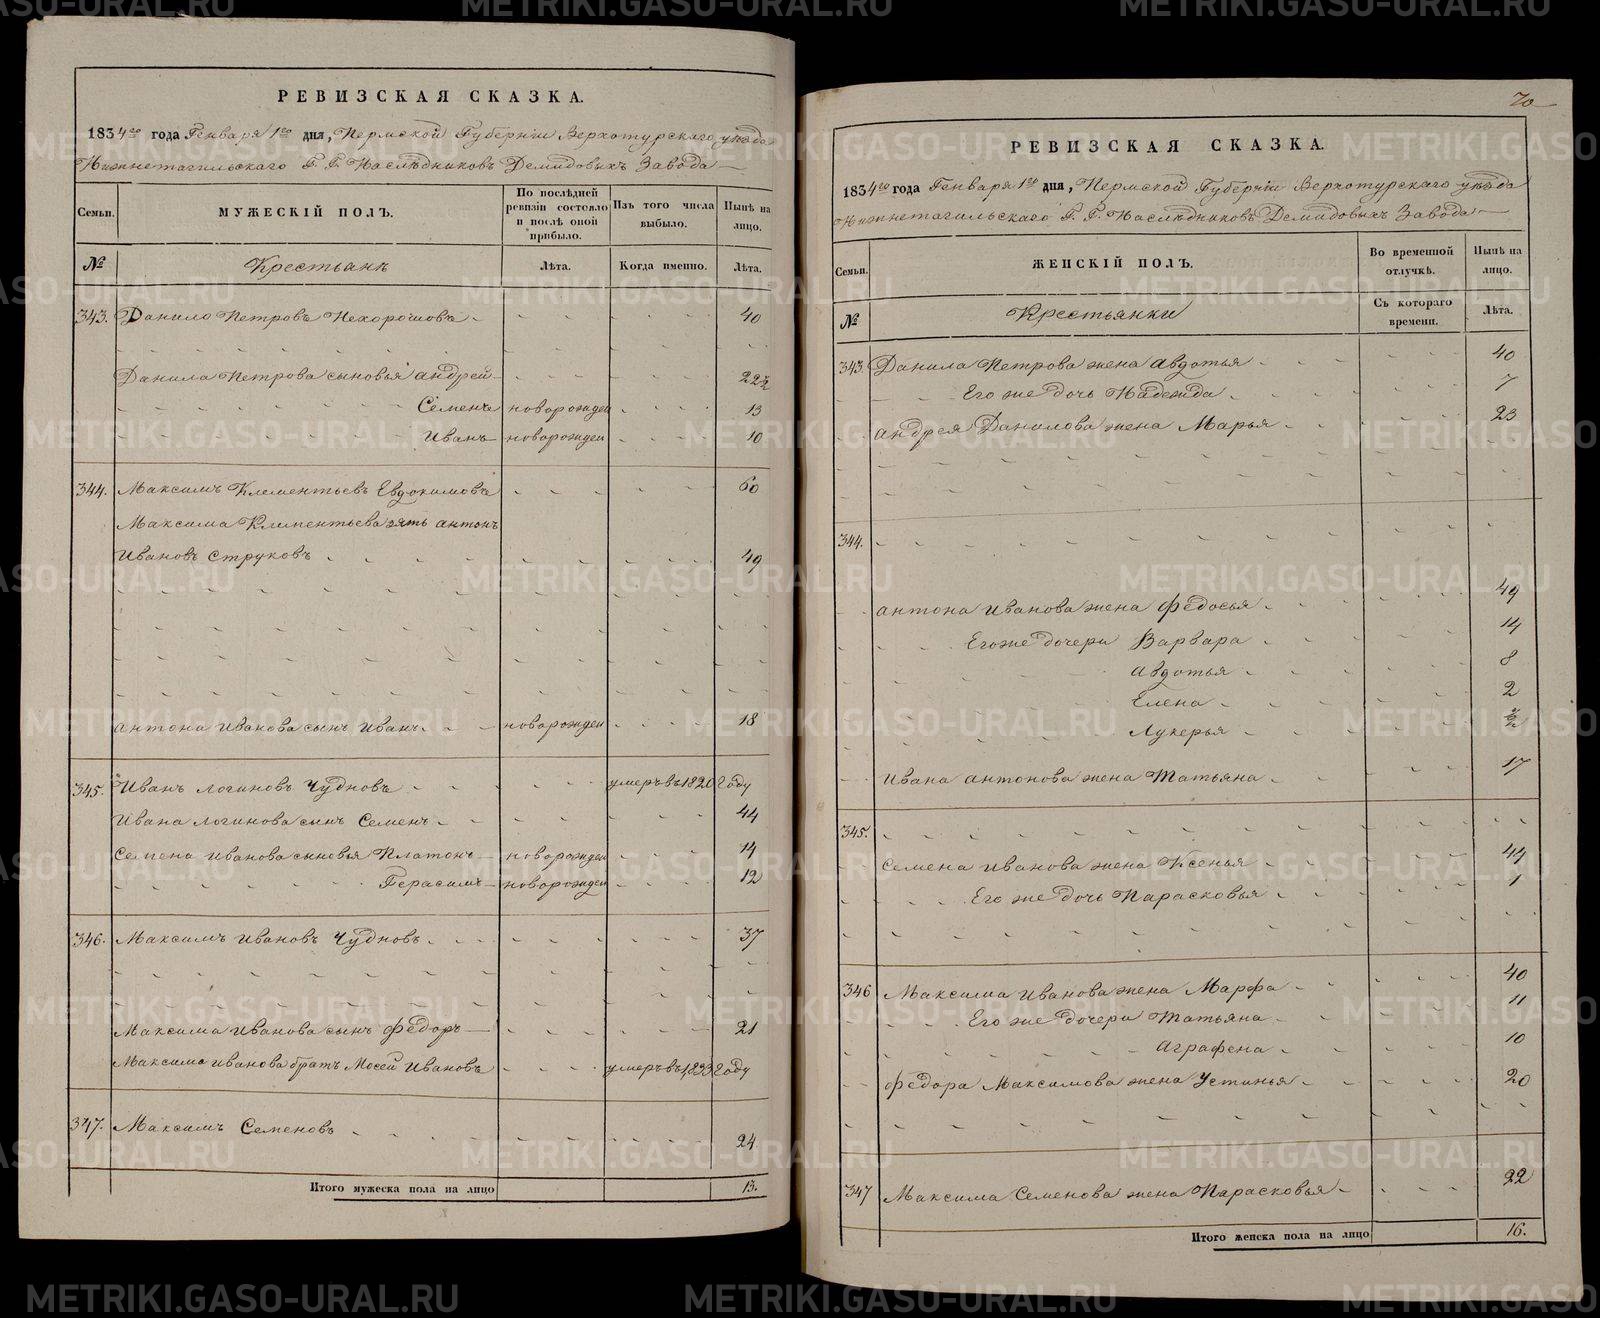 РЕВИЗСКАЯ СКАЗКА.
1834го года Генваря 1го дня, Пермской Губерніи Верхотурскаго уѣзда
Нижнетагильскаго Г. Г. Наслѣдниковъ Демидовыхъ Завода
Семьи. МУЖЕСКІЙ ПОЛЪ. По послѣдней ревизіи состояло и послѣ оной прибыло. Изъ того числа выбыло. Нынѣ на лицо.
№ Крестьянъ Лѣта. Когда именно. Лѣта.
343. Данило Петровъ Нехорошовъ 40
Данила Петрова сыновья андрей 22½
Семенъ новорожден 13
Иванъ новорожден 10
344. Максимъ Клементьевъ Евдокимовъ 60
Максима Климентьева зять антонъ
Ивановъ Струковъ 49
антона Иванова сынъ Иванъ новорожден 18
345. Иванъ Логиновъ Чудновъ умеръ въ 1820 году
Ивана Логинова сынъ Семенъ 44
Семена Иванова сыновья Платонъ новорожден 14
Герасимъ новорожден 12
346. Максимъ Ивановъ Чудновъ 37
Максима Иванова сынъ Федоръ 21
Максима Иванова братъ Мосей Ивановъ умеръ въ 1833 году
347. Максимъ Семеновъ 24
Итого мужеска пола на лицо 13.
70
РЕВИЗСКАЯ СКАЗКА.
1834го года Генваря 1го дня, Пермской Губерніи Верхотурскаго уѣзда
Нижнетагильскаго Г. Г. Наслѣдниковъ Демидовыхъ Завода
Семьи. ЖЕНСКІЙ ПОЛЪ. Во временной отлучкѣ. Нынѣ на лицо.
№ Крестьянки Съ котораго времени. Лѣта.
343. Данила Петрова жена авдотья 40
Его же дочь Надежда 7
андрея Данилова жена Марья 23
344.
антона Иванова жена Федосья 49
Его же дочери Варвара 14
авдотья 8
Елена 2
Лукерья ½
Ивана антонова жена Татьяна 17
345.
Семена Иванова жена Ксенья 44
Его же дочь Парасковья 1
346 Максима Иванова жена Марфа 40
Его же дочери Татьяна 11
аграфена 10
Федора Максимова жена Устинья 20
347 Максима Семенова жена Парасковья 22
Итого женска пола на лицо 16.
METRIKI.GASO-URAL.RU